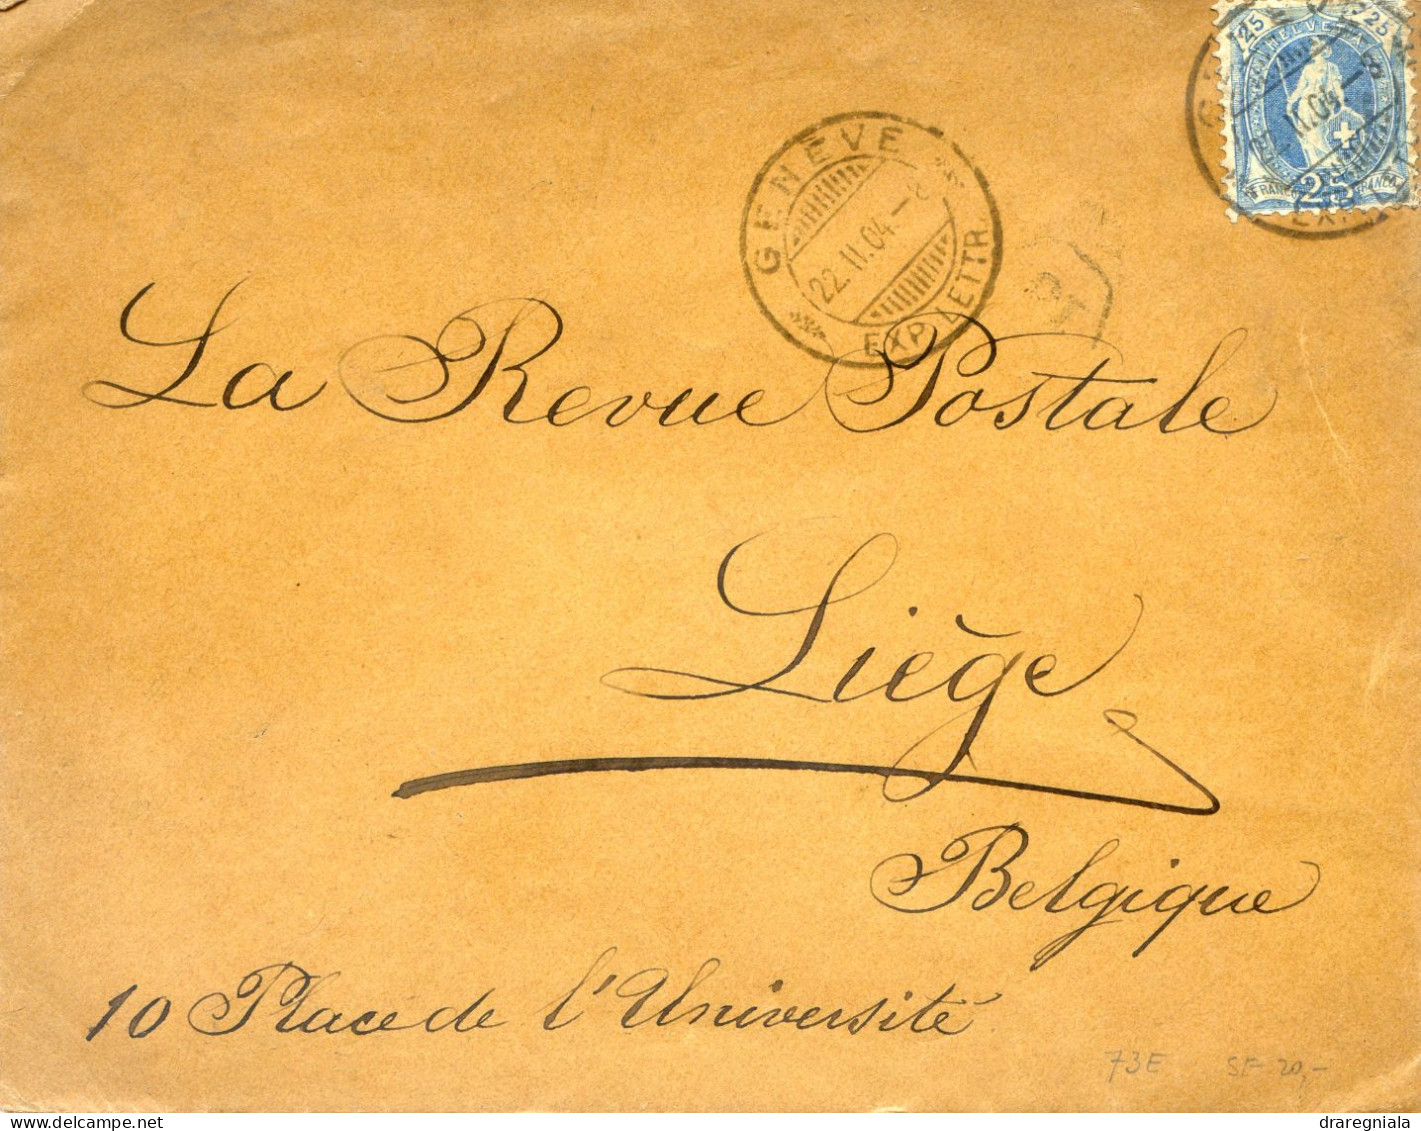 25 HELVETIA 25
FRANCO 25 FRANCO
GENÈVE
22.II.04.–8
EXP. LETTR.
La Revue Postale
Liège
Belgique
10 Place de l'Université
73E SF 20,-
www.delcampe.net
draregniala